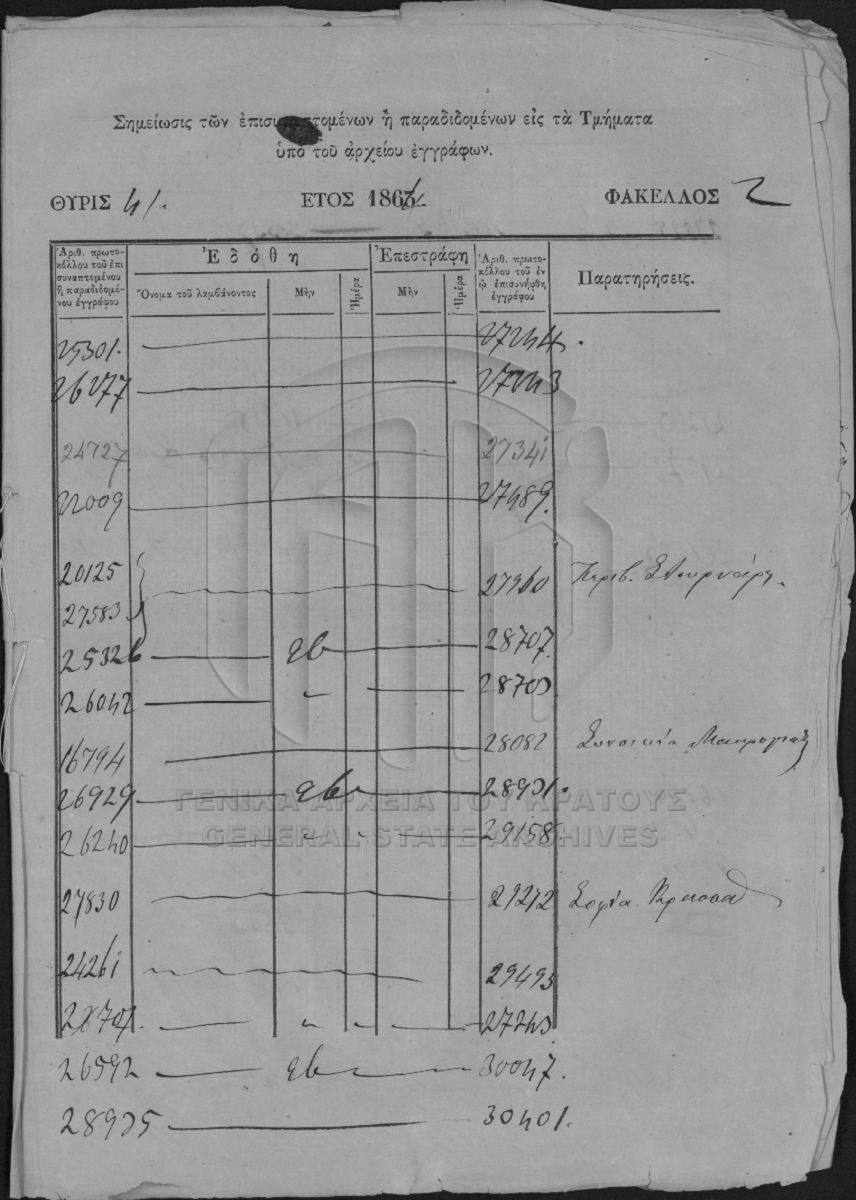 Σημείωσις τῶν ἐπισυναπτομένων ἢ παραδιδομένων εἰς τὰ Τμήματα
ὑπὸ τοῦ ἀρχείου ἐγγράφων.
ΘΥΡΙΣ 41. ΕΤΟΣ 186 ΦΑΚΕΛΛΟΣ 2
Ἀριθ. πρωτοκόλλου τοῦ ἐπισυναπτομένου ἢ παραδιδομένου ἐγγράφου
Ἐδόθη
Ὄνομα τοῦ λαμβάνοντος Μὴν Ἡμέρα
Ἐπεστράφη
Μὴν Ἡμέρα
Ἀριθ. πρωτοκόλλου τοῦ ἐν ᾧ ἐπισυνήφθη ἐγγράφου
Παρατηρήσεις.
25301. 27244.
26277 27243
24727 27341
22009 27489.
20125 27960
27583
25326 28707.
26042 28703.
16794 28082 Συνοικία
26929 28931.
26240 29158.
27830 29272 Σοφία
24261 29493
27243
26592 30047.
28935 30401.
ΓΕΝΙΚΑ ΑΡΧΕΙΑ ΤΟΥ ΚΡΑΤΟΥΣ
GENERAL STATE ARCHIVES